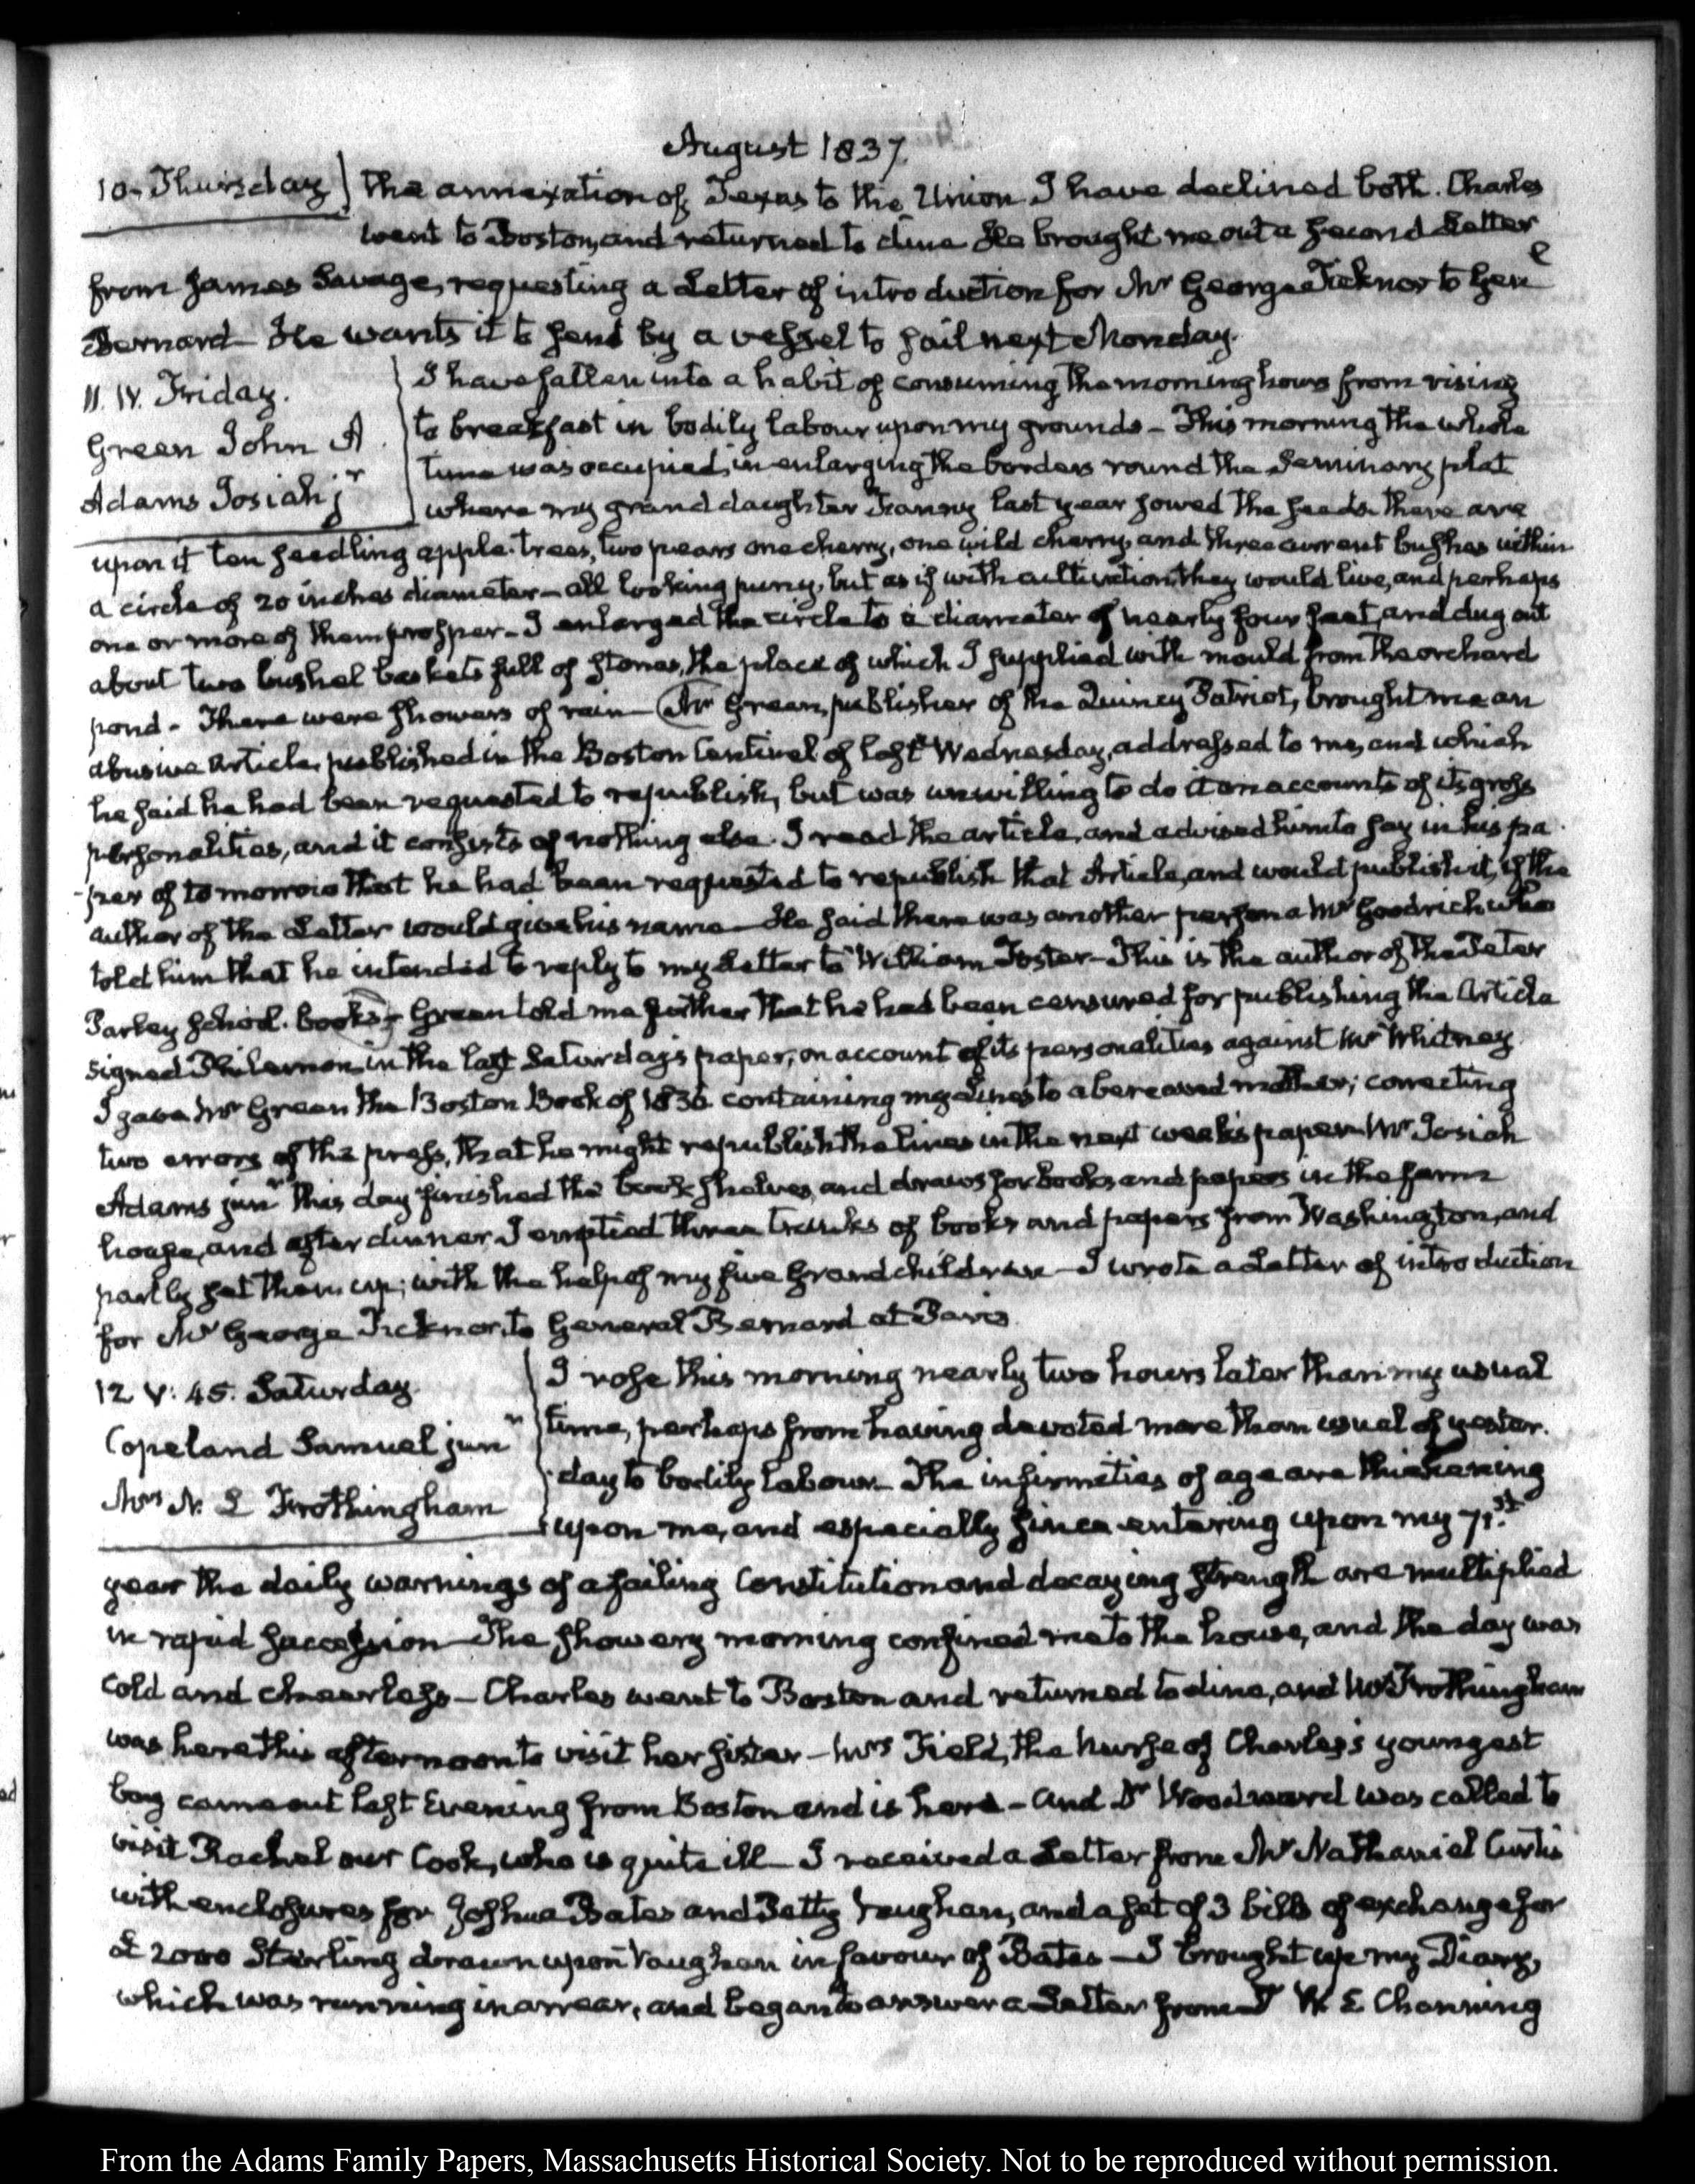 August 1837.
10. Thursday } the annexation of Texas to the Union I have declined both. Charles
went to Boston, and returned to dine He brought me out a second Letter
from James Savage, requesting a Letter of introduction for Mr George Ticknor to Genl
Bernard— He wants it to send by a vessel to sail next Monday.
11. IV. Friday.
Green John A
Adams Josiah jr
I have fallen into a habit of consuming the morning hours from rising
to breakfast in bodily labour upon my grounds— This morning the whole
time was occupied, in enlarging the borders round the Seminary plat
where my grand daughter Fanny last year sowed the seeds. there are
upon it ten seedling apple-trees, two pears one cherry, one wild cherry, and three currant bushes within
a circle of 20 inches diameter— all looking puny, but as if with cultivation, they would live, and perhaps
one or more of them prosper— I enlarged the circle to a diameter of nearly four feet, and dug out
about two bushel baskets full of stones, the place of which I supplied with mould from the orchard
pond— There were showers of rain— Mr Green, publisher of the Quincy Patriot, brought me an
abusive Article, published in the Boston Centinel of last Wednesday, addressed to me, and which
he said he had been requested to republish, but was unwilling to do it on accounts of its gross
personalities, and it consists of nothing else. I read the article, and advised him to say in his pa-
-per of to morrow that he had been requested to republish that Article, and would publish it, if the
author of the Letter would give his name— He said there was another person a Mr Goodrich who
told him that he intended to reply to my Letter to William Foster— This is the author of the Peter
Parley school-books— Green told me further that he had been censured for publishing the Article
signed Philemon in the last Saturday's paper, on account of its personalities against Mr Whitney.
I gave Mr Green the Boston Book of 1836 containing my Lines to a bereaved mother; correcting
two errors of the press, that he might republish the lines in the next week's paper— Mr Josiah
Adams junr this day finished the book shelves, and draws for books and papers in the farm
house, and after dinner I emptied three trunks of books and papers from Washington, and
partly set them up; with the help of my five Grandchildren— I wrote a Letter of introduction
for Mr George Ticknor, to General Bernard at Paris.
12 V: 45. Saturday.
Copeland Samuel junr
Mrs N. L Frothingham
I rose this morning nearly two hours later than my usual
time, perhaps from having devoted more than usual of yester-
day to bodily labour— The infirmities of age are thickening
upon me, and especially since entering upon my 71.st
year the daily warnings of a failing Constitution and decaying strength are multiplied
in rapid succession— The showery morning confined me to the house, and the day was
cold and cheerless— Charles went to Boston and returned to dine, and Mrs Frothingham
was here this afternoon to visit her sister— Mrs Field, the nurse of Charles's youngest
boy came out last Evening from Boston and is here— and Dr Woodward was called to
visit Rachel our Cook, who is quite ill— I received a Letter from Mr Nathaniel Curtis
with enclosures for Joshua Bates and Petty Vaughan, and a set of 3 bills of exchange for
£ 2000 Sterling drawn upon Vaughan in favour of Bates— I brought up my Diary,
which was running in arrear, and began to answer a Letter from Dr W. E Channing
From the Adams Family Papers, Massachusetts Historical Society. Not to be reproduced without permission.